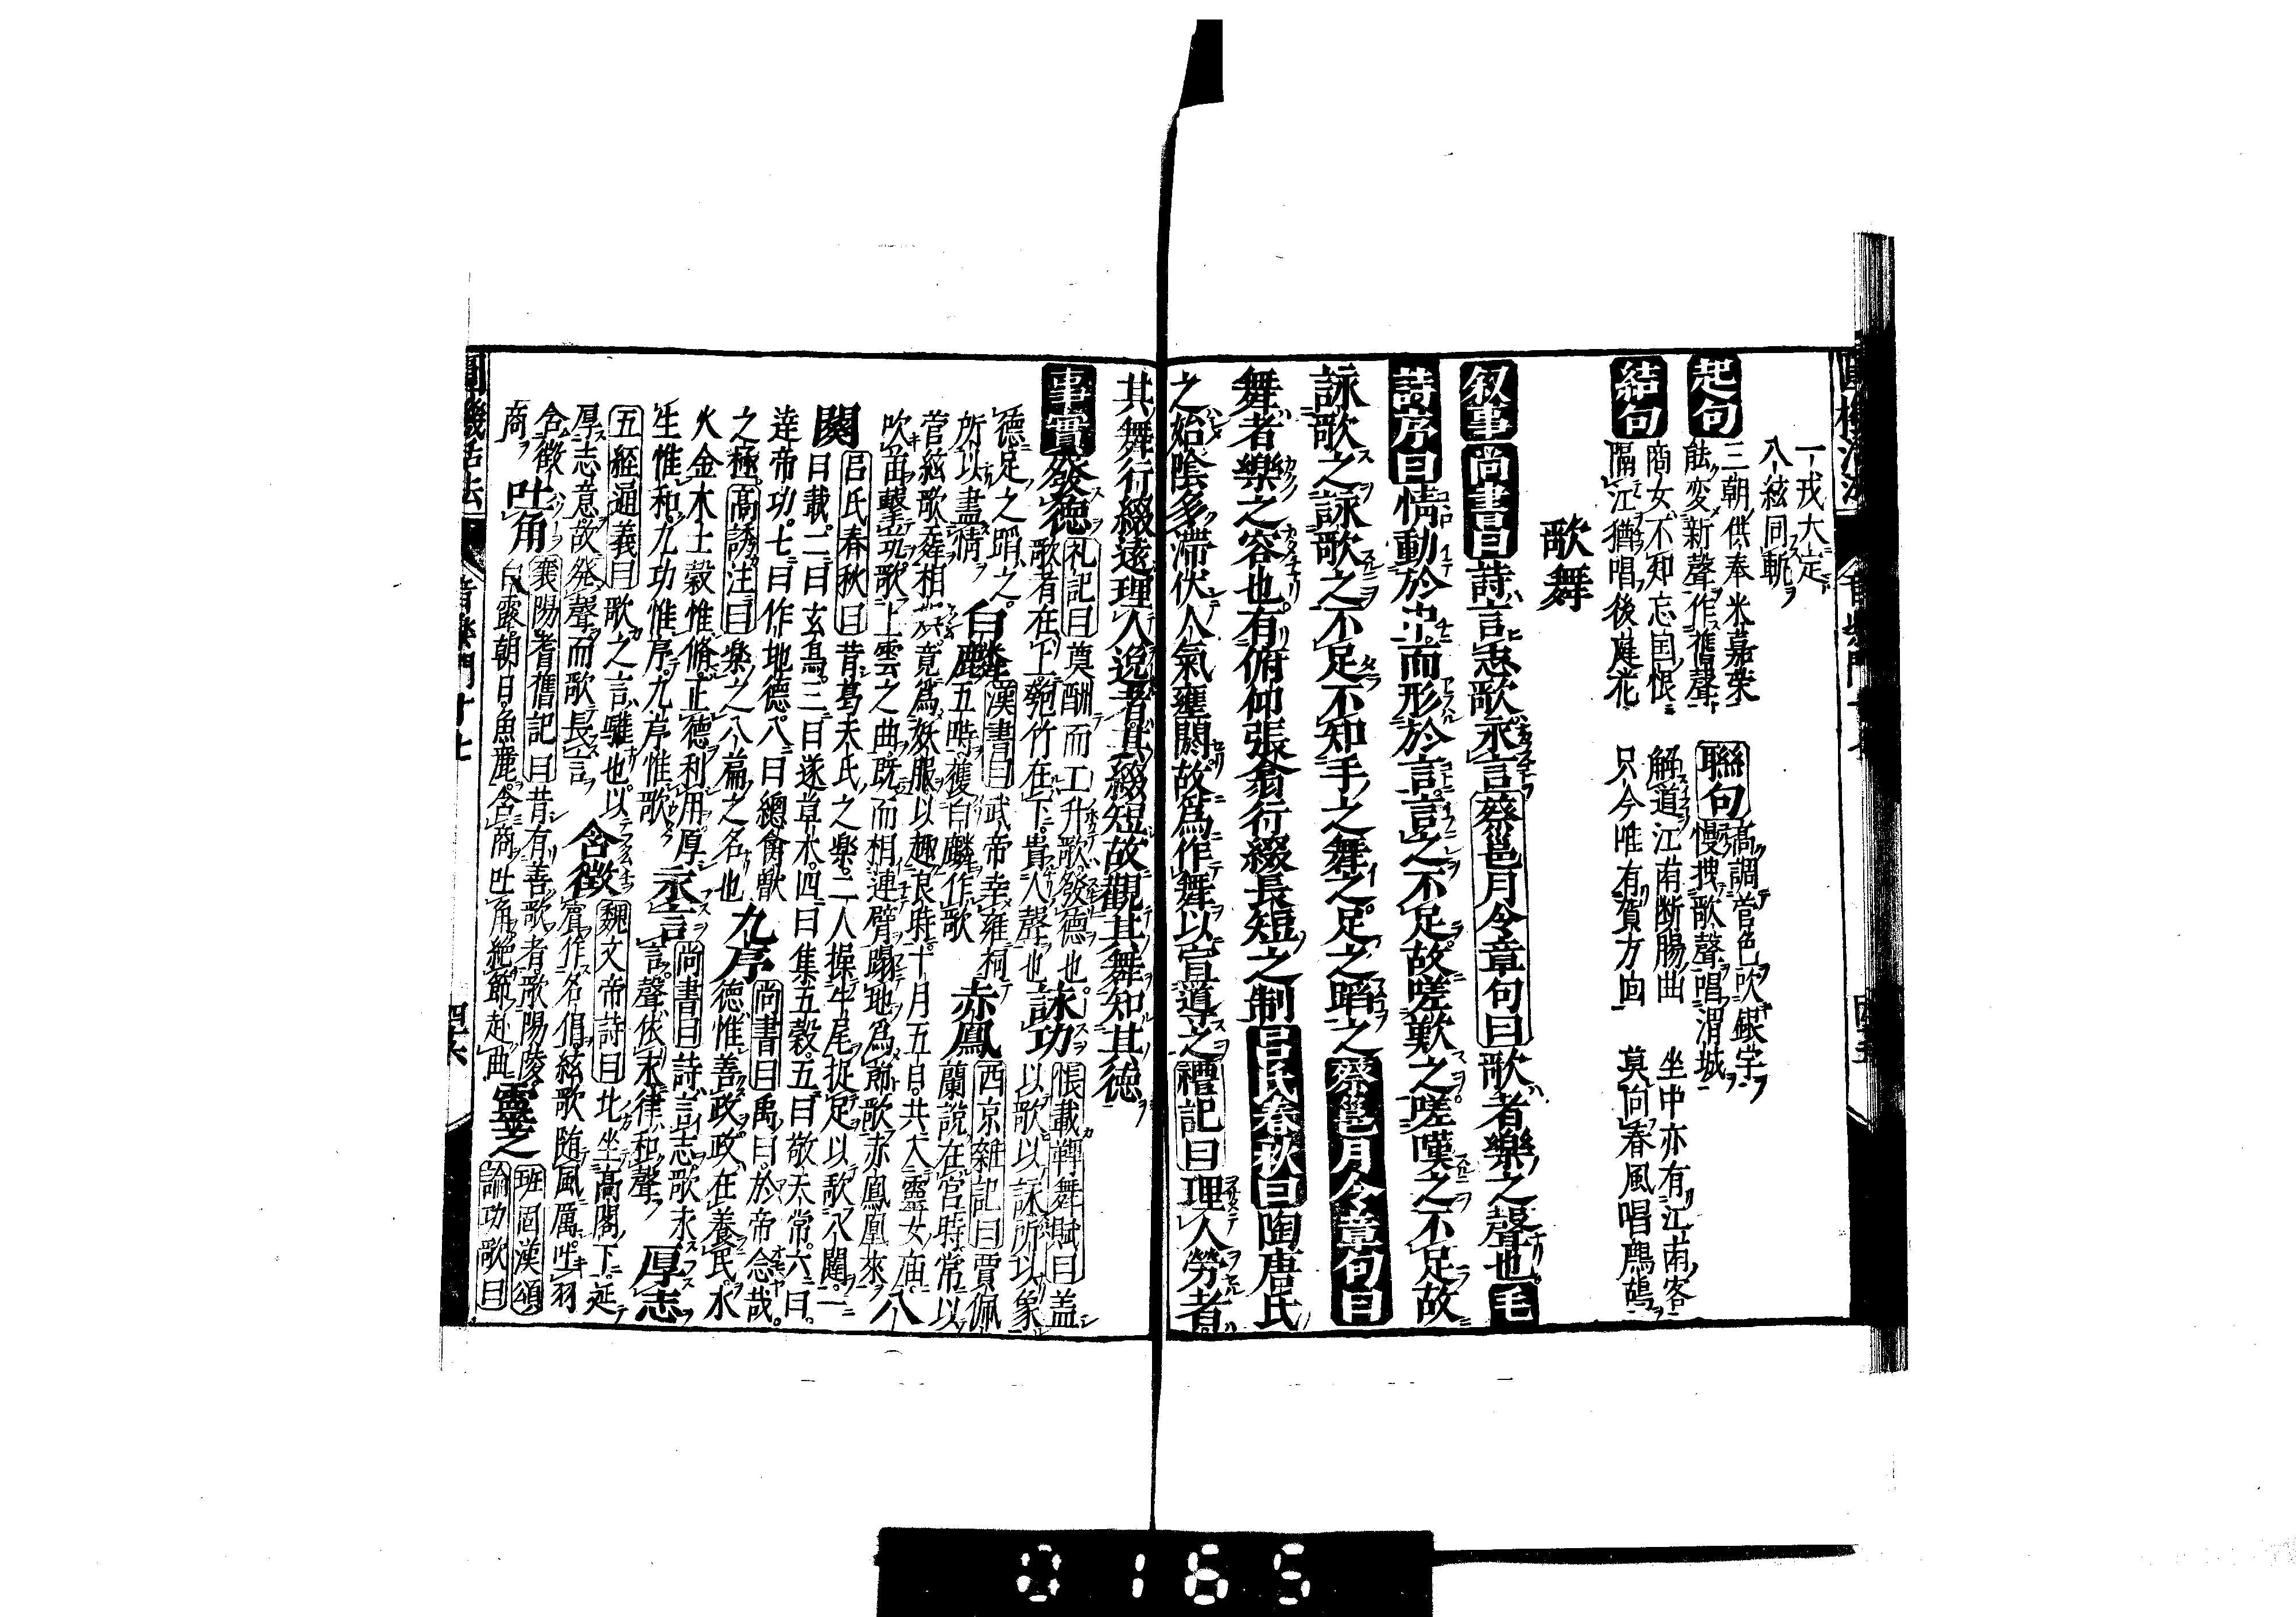 一戎大定
八絃同斬
起句 三朝供奉米嘉榮
能変新聲作舊聲
聯句 高調管色吹銀字
慢拽歌聲唱渭城
商女不知忘国恨
解道江南断腸曲
坐中亦有江南客
結句 隔江猶唱後庭花
只今唯有賀方回
莫向春風唱鷓鴣
歌舞
叙事 尚書曰詩言志歌永言蔡邕月令章句曰歌者樂之聲也毛
詩序曰情動於中而形於言言之不足故嗟歎之嗟嘆之不足故
詠歌之詠歌之不足不知手之舞之足之蹈之蔡邕月令章句曰
舞者樂之容也有俯仰張翕行綴長短之制呂氏春秋曰陶唐氏
之始陰多滞伏人氣壅閼故為作舞以宣導之禮記曰理人勞者
其舞行綴遠理人逸者其綴短故觀其舞知其徳
事實 發徳 礼記曰奠酬而工升歌發德也
歌有在上匏竹在下貴人聲也 詠功 張載鞞舞賦曰盖
以歌以詠所以象
德足之蹈之
所以盡情 白麟 漢書曰武帝幸雍祠
五時獲白麟作歌 赤鳳 西京雜記曰賈佩
蘭說在宮時常以
菅絃歌舞相
竟為妖服以趣良時十月五日共入靈女庙
吹笛擊筑歌上雲之曲既而相連臂蹋地為節歌赤鳳凰來 八
闋 呂氏春秋曰昔葛天氏之樂二人操牛尾捉足以歌八闋一
曰載二曰玄鳥三曰遂草木四曰集五穀五曰敬天常六曰
逹帝功七曰作地德八曰總禽獣
之極高誘注曰樂之八篇之名也 九序 尚書曰禹曰於帝念哉
德惟善政政在養民水
火金木土穀惟脩正德利用厚
生惟和九功惟序九序惟歌 永言 尚書曰詩言志歌永
言聲依永律和聲 厚志
五經通義曰歌之言雖也以
厚志意故発聲而歌長言 含徵 魏文帝詩曰北坐高閣下延
賓作名倡絃歌随風厲吐羽
含徵
商 吐角 襄陽耆舊記曰昔有善歌者歌陽陵
白露朝日魚麗含商吐角絶節赴曲 靈芝 班固漢頌
論功歌曰
圓機活法 音樂門十七 四六